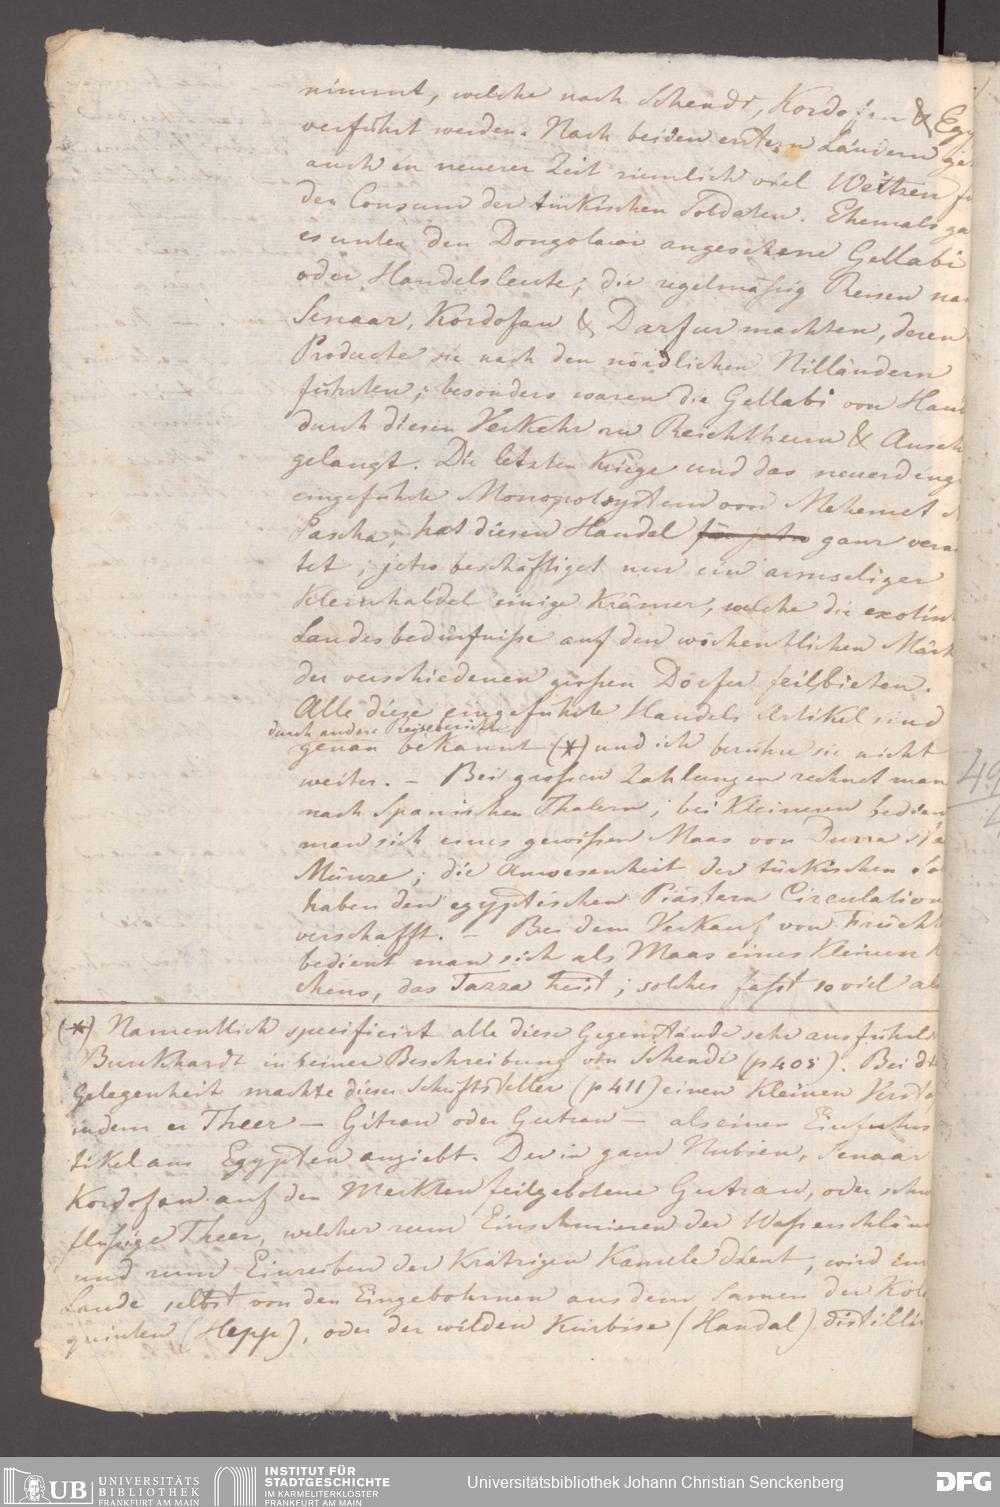 nimmt, welche nach Schendi, Kordofan & Egy
verführt werden. Nach beiden ersten Ländern ge
auch in neuerer Zeit ziemlich viel Weitzen fü
den Consum der türkischen Soldaten. Ehemals ga
es unter den Dongolawi angesehene Gellabi
oder Handelsleute, die regelmäßig Reisen nac
Senaar, Kordofan & Darfur machten, deren
Producte sie nach den nördlichen Nilländern
führten; besonders waren die Gellabi von Han
durch diesen Verkehr zu Reichthum & Anseh
gelangt. Die letzten Kriege und das neuerdings
eingeführte Monopolsystem von Mehemet A
Pascha, hat diesen Handel für jetzo ganz vern
tet; jetzo beschäftiget nur ein armseliger
Kleinhaldel einige Krämer, welche die exotisch
Landesbedürfniße auf den wöchentlichen Märk
der verschiedenen großen Dörfer feilbieten.
Alle diese eingeführte Handels Artikel sind
durch andere Reiseberichte
genau bekannt (*) und ich berühre sie nicht
weiter. – Bei großen Zahlungen rechnet man
nach Spanischen Thalern; bei kleineren bedien
man sich eines gewißen Maas von Durra sta
Münze; die Anwesenheit der türkischen So
haben den egyptischen Piastern Circulation
verschafft. – Bei dem Verkauf von Frücht
bedient man sich als Maas eines kleinen K
chens, das Tazza heist; solches faßt so viel als
(*) Namentlich specificirt alle diese Gegenstände sehr ausführl
Burckhardt in seiner Beschreibung von Schendi (p 405). Bei di
Gelegenheit machte dieser Schriftsteller (p 411) einen kleinen Versto
indem er Theer – Gitran oder Gutran – als einen Einfuhrs
tikel aus Egypten angiebt. Der in ganz Nubien, Senaar
Kordofan auf den Merkten feilgebotene Gutran, oder schw
flußige Theer, welcher zum Einschmieren der Waßerschläu
und zum Einreiben der Krätzigen Kamele dient, wird im
Lande selbst von den Eingebohrnen aus dem Samen der Kolo
quinten (Hepp), oder der wilden Kürbise (Handal) distillir
49
UB UNIVERSITÄTS
BIBLIOTHEK
FRANKFURT AM MAIN
INSTITUT FÜR
STADTGESCHICHTE
IM KARMELITERKLOSTER
FRANKFURT AM MAIN
Universitätsbibliothek Johann Christian Senckenberg
DFG